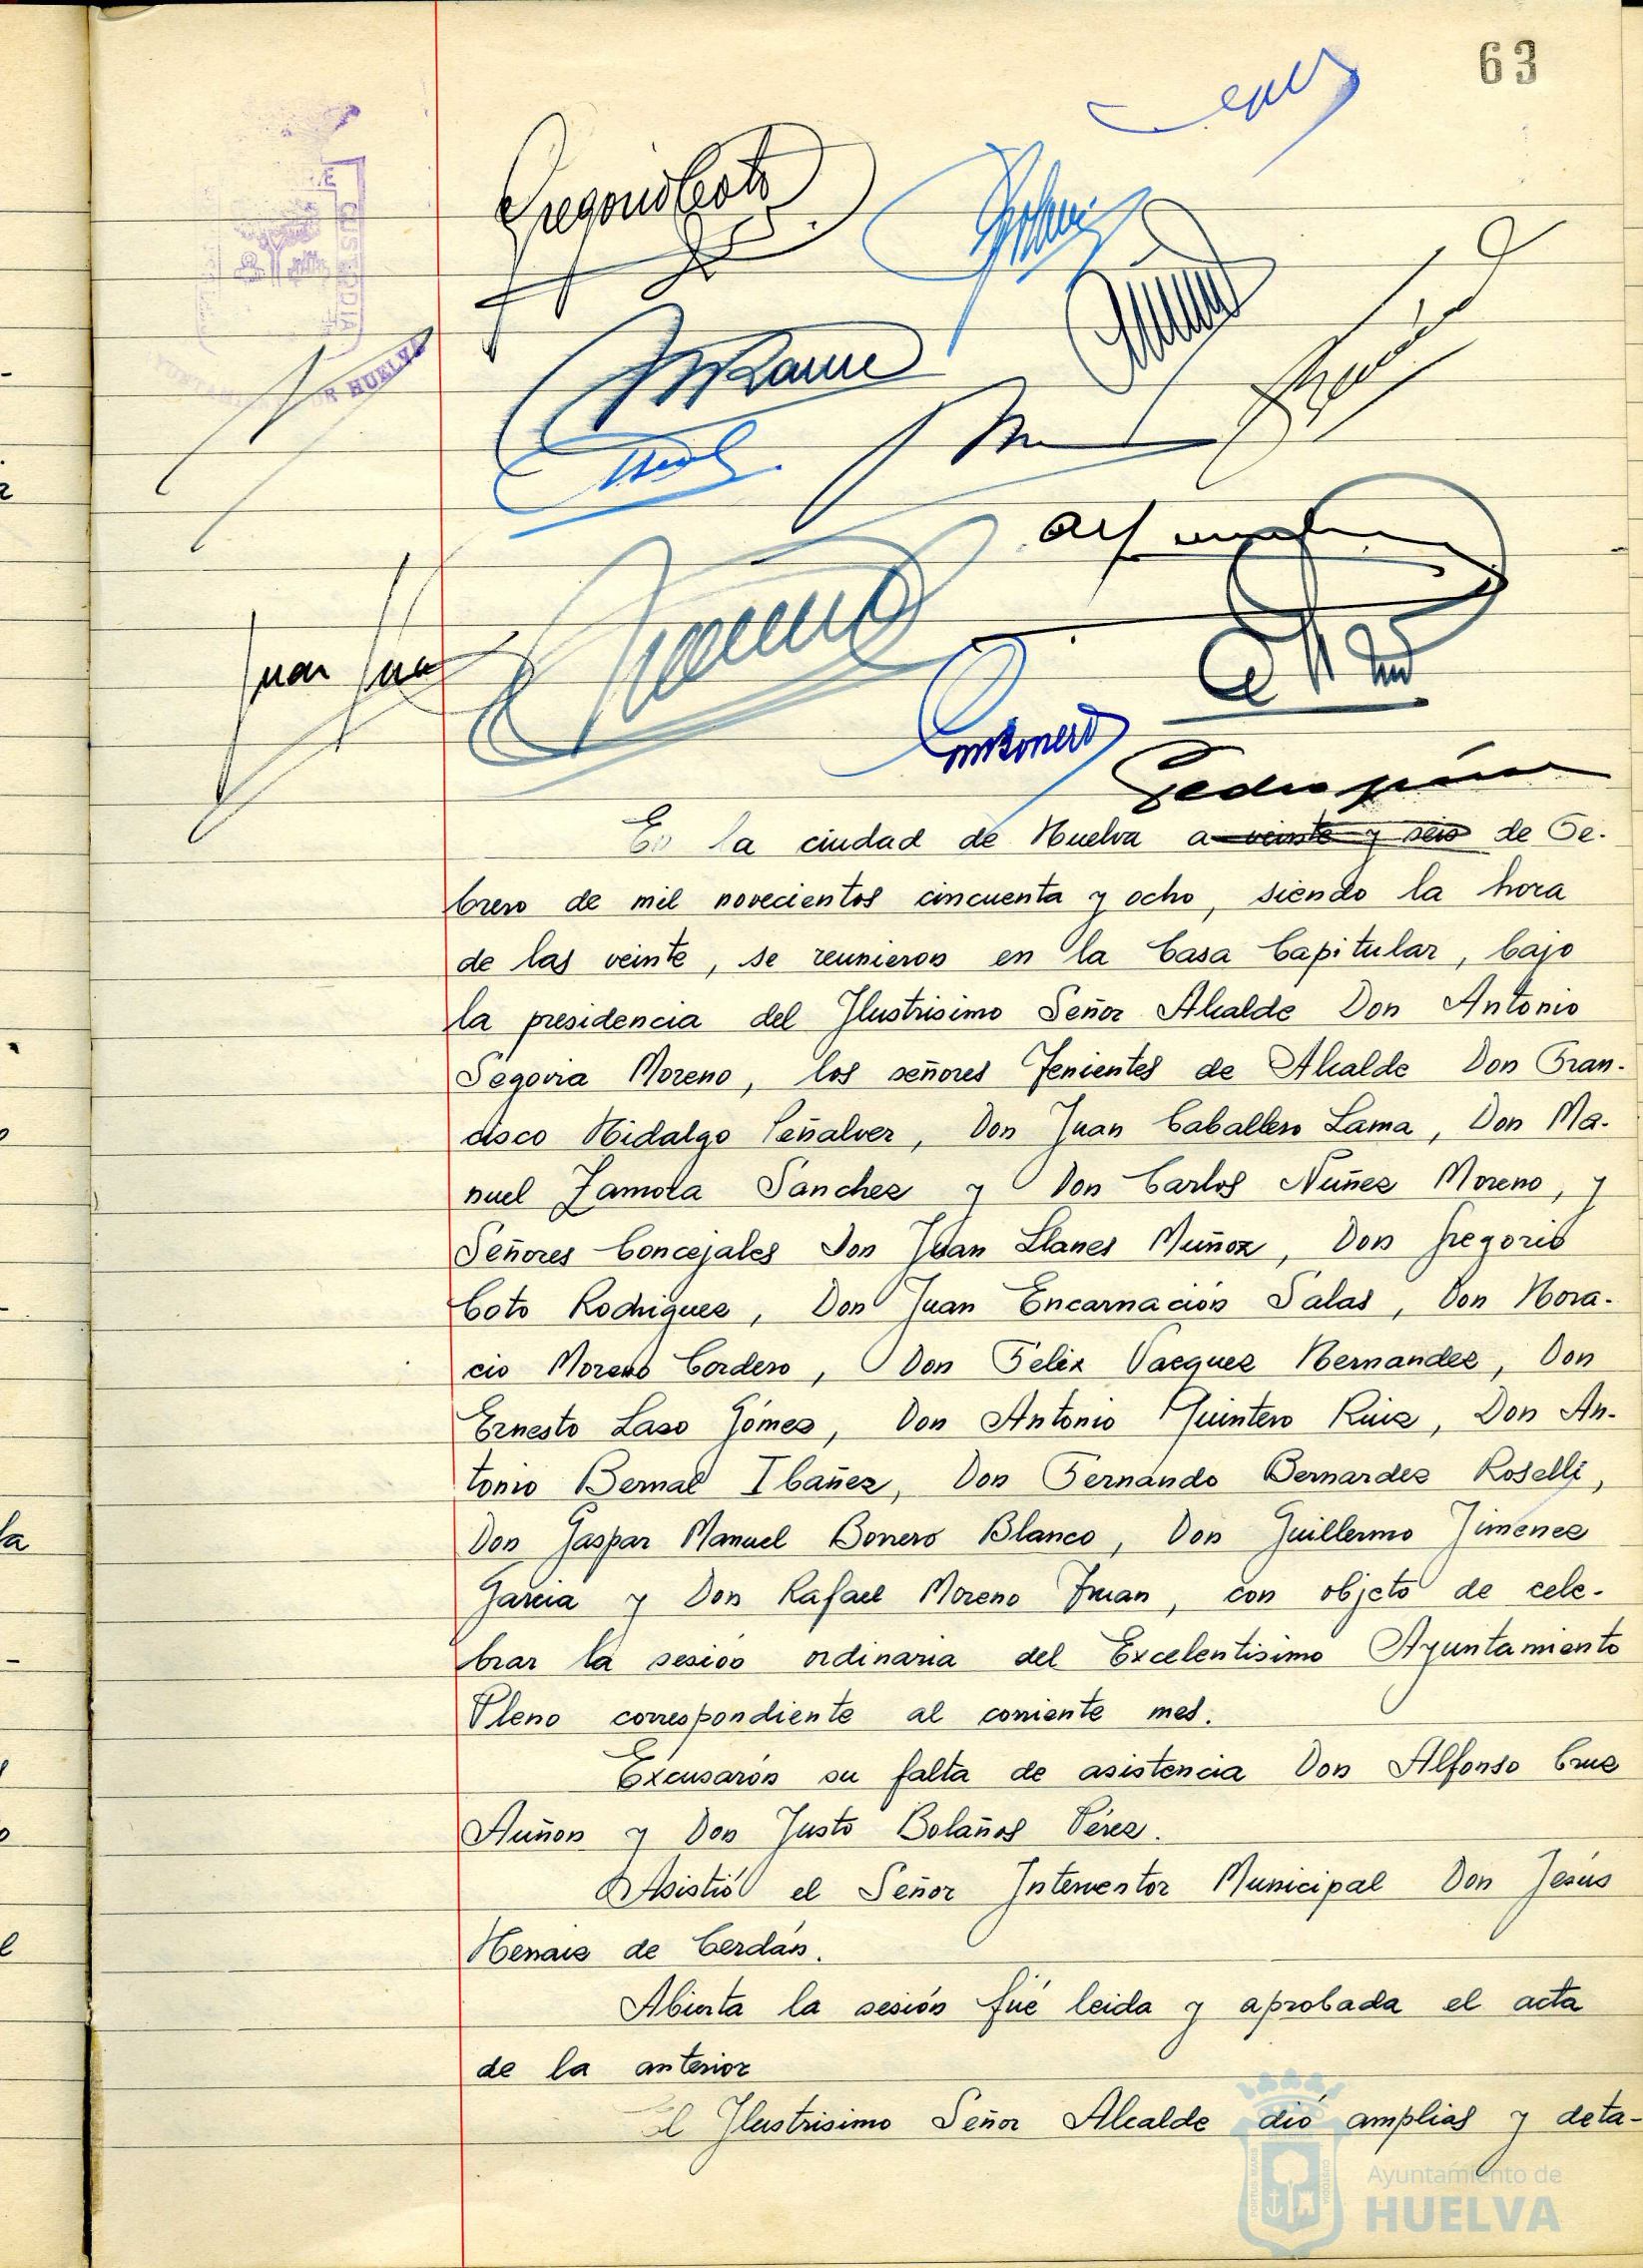 63
Gregorio Coto
CUSTODIA
AYUNTAMIENTO DE HUELVA
Juan
En la ciudad de Huelva a veinte y seis de Fe-
brero de mil novecientos cincuenta y ocho, siendo la hora
de las veinte, se reunieron en la Casa Capitular, bajo
la presidencia del Ilustrisimo Señor Alcalde Don Antonio
Segovia Moreno, los señores Tenientes de Alcalde Don Fran-
cisco Hidalgo Peñalver, Don Juan Caballero Lama, Don Ma-
nuel Zamora Sanchez y Don Carlos Nuñez Moreno, y
Señores Concejales Don Juan Llanes Muñoz, Don Gregorio
Coto Rodriguez, Don Juan Encarnación Salas, Don Hora-
cio Moreno Cordero, Don Felix Vazquez Hernandez, Don
Ernesto Laso Gómez, Don Antonio Quintero Ruiz, Don An-
tonio Bernal Ibañez, Don Fernando Bernardez Roselli,
Don Gaspar Manuel Borrero Blanco, Don Guillermo Jimenez
Garcia y Don Rafael Moreno Juan, con objeto de cele-
brar la sesión ordinaria del Excelentisimo Ayuntamiento
Pleno correspondiente al corriente mes.
Excusaron su falta de asistencia Don Alfonso Cruz
Auñon y Don Justo Bolaños Pérez.
Asistió el Señor Interventor Municipal Don Jesús
Henaiz de Cerdán.
Abierta la sesión fué leida y aprobada el acta
de la anterior
El Ilustrisimo Señor Alcalde dió amplias y deta-
Ayuntamiento de
HUELVA